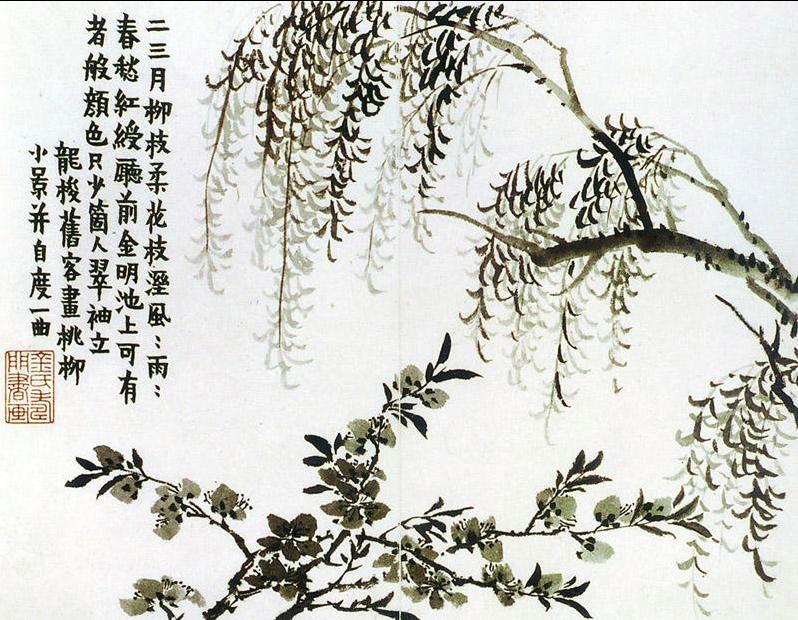 二三月柳枝柔花枝溼風:雨:
春愁紅綬廳前金明池上可有
者般顏色只少箇人翠袖立
龍梭舊客畫桃柳
小景并自度一曲
金氏壽
門書畫